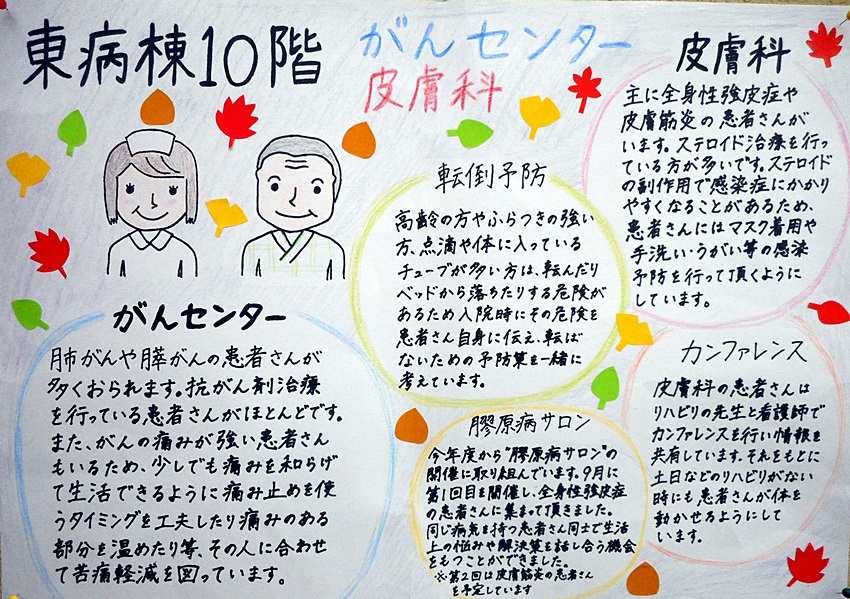 東病棟10階
がんセンター
皮膚科
がんセンター
肺がんや膵がんの患者さんが
多くおられます。抗がん剤治療
を行っている患者さんがほとんどです。
また、がんの痛みが強い患者さん
もいるため、少しでも痛みを和らげ
て生活できるように痛み止めを使
うタイミングを工夫したり痛みのある
部分を温めたり等、その人に合わせ
て苦痛軽減を図っています。
転倒予防
高齢の方やふらつきの強い
方、点滴や体に入っている
チューブが多い方は、転んだり
ベッドから落ちたりする危険が
あるため入院時にその危険を
患者さん自身に伝え、転ば
ないための予防策を一緒に
考えています。
膠原病サロン
今年度から"膠原病サロン"の
開催に取り組んでいます。9月に
第1回目を開催し、全身性強皮症
の患者さんに集まって頂きました。
同じ病気を持つ患者さん同士で生活
上の悩みや解決策を話し合う機会
をもつことができました。
※第2回は皮膚筋炎の患者さん
を予定しています
皮膚科
主に全身性強皮症や
皮膚筋炎の患者さんが
います。ステロイド治療を行っ
ている方が多いです。ステロイド
の副作用で感染症にかかり
やすくなることがあるため、
患者さんにはマスク着用や
手洗い・うがい等の感染
予防を行って頂くように
しています。
カンファレンス
皮膚科の患者さんは
リハビリの先生と看護師で
カンファレンスを行い情報を
共有しています。それをもとに
土日などのリハビリがない
時にも患者さんが体を
動かせるようにして
います。